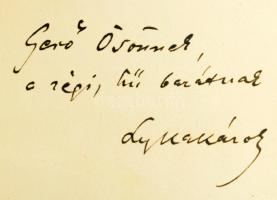 Gerő Ödönnek,
a régi, hű barátnak
Lyka Károly